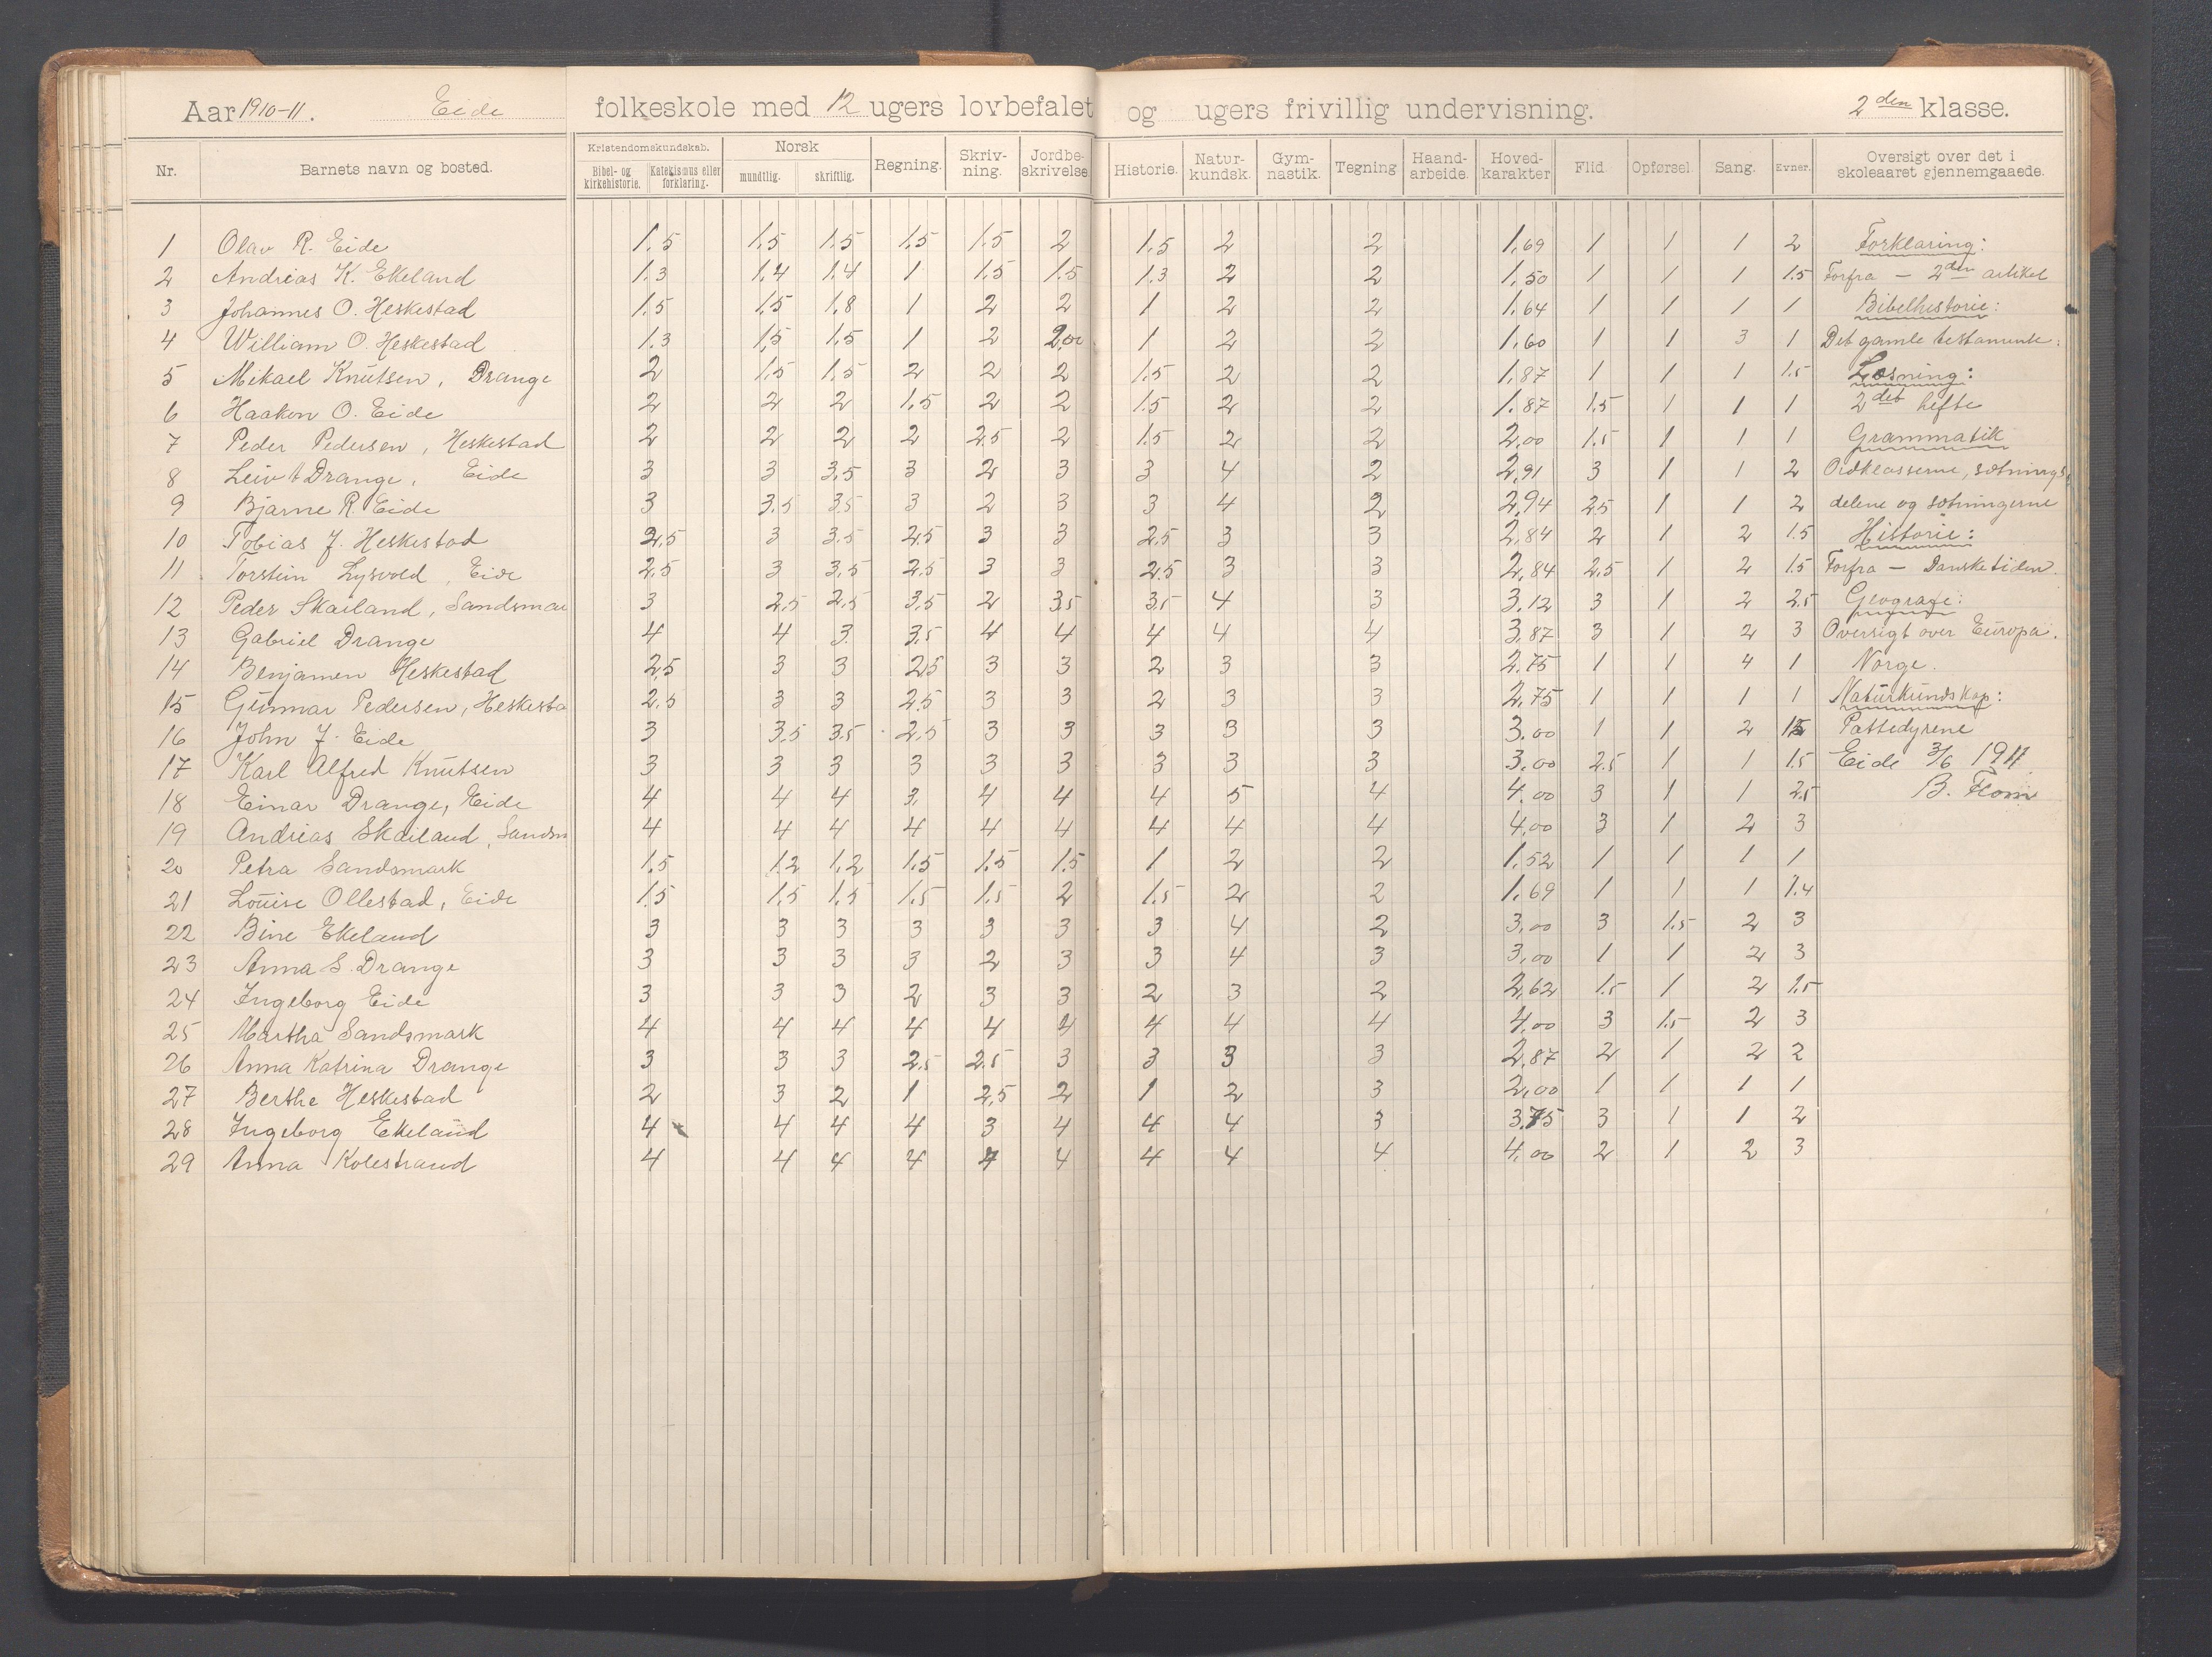 Aar 1910-11. Eide folkeskole med 12 ugers lovbefalet og ugers frivillig undervisning. 2den klasse.
Nr. Barnets navn og bosted. Kristendomskundskab. Bibel- og kirkehistorie. Katekismus eller forklaring. Norsk mundtlig. skriftlig. Regning. Skriv-ning. Jordbe-skrivelse. Historie. Natur-kundsk. Gym-nastik. Tegning Haand-arbeide. Hoved-karakter Flid. Opførsel. Sang. Evner. Oversigt over det i skoleaaret gjennemgaaede.
1 Olav R. Eide 1.5 1.5 1.5 1.5 1.5 2 1.5 2 2 1.69 1 1 1 2 Forklaring:
2 Andreas K. Ekeland 1.3 1.4 1.4 1 1.5 1.5 1.3 2 2 1.50 1 1 1 1.5 Forfra — 2den artikel
3 Johannes O. Heskestad 1.5 1.5 1.8 1 2 2 1 2 2 1.64 1 1 1 1 Bibelhistorie:
4 William O. Heskestad 1.3 1.5 1.5 1 2 2.00 1 2 2 1.60 1 1 3 1 Det gamle testamente.
5 Mikael Knutsen, Drange 2 1.5 1.5 2 2 2 1.5 2 2 1.87 1 1 1 1.5 Læsning:
6 Haakon O. Eide 2 2 2 1.5 2 2 1.5 2 2 1.87 1.5 1 1 1 2det hefte
7 Peder Pedersen, Heskestad 2 2 2 2 2.5 2 1.5 2 2 2.00 1.5 1 1 1 Grammatik
8 Leiv Drange, Eide 3 3 3.5 3 2 3 3 4 2 2.91 3 1 1 2 Ordklasserne, sætnings
9 Bjarne R. Eide 3 3.5 3.5 3 2 3 3 4 2 2.94 2.5 1 1 2 delene og sætningerne
10 Tobias J. Heskestad 2.5 3 3.5 2.5 3 3 2.5 3 3 2.84 2 1 2 1.5 Historie:
11 Torstein Lysvold, Eide 2.5 3 3.5 2.5 3 3 2.5 3 3 2.84 2.5 1 2 1.5 Forfra — Dansketiden.
12 Peder Skailand, Sandsmar 3 2.5 2.5 3.5 2 3.5 3.5 4 3 3.12 3 1 2 2.5 Geografi:
13 Gabriel Drange 4 4 3 3.5 4 4 4 4 4 3.87 3 1 2 3 Oversigt over Europa.
14 Benjamen Heskestad 2.5 3 3 2.5 3 3 2 3 3 2.75 1 1 4 1 Norge.
15 Gunnar Pedersen, Heskesta 2.5 3 3 2.5 3 3 2 3 3 2.75 1 1 1 1 Naturkundskap:
16 John J. Eide 3 3.5 3.5 2.5 3 3 3 3 3 3.00 1 1 2 1.5 Pattedyrene
17 Karl Alfred Knutsen 3 3 3 3 3 3 3 3 3 3.00 2.5 1 1 1.5 Eide 3/6 1911
18 Einar Drange, Eide 4 4 4 3. 4 4 4 5 4 4.00 3 1 1 2.5 B. Flom
19 Andreas Skailand, Sandsm 4 4 4 4 4 4 4 4 4 4.00 3 1 2 3
20 Petra Sandsmark 1.5 1.2 1.2 1.5 1.5 1.5 1 2 2 1.52 1 1 1 1
21 Louise Ollestad, Eide 1.5 1.5 1.5 1.5 1.5 2 1.5 2 2 1.69 1 1 1 1.4
22 Bine Ekeland 3 3 3 3 3 3 3 4 2 3.00 3 1.5 2 3
23 Anna S. Drange 3 3 3 3 2 3 3 4 3 3.00 1 1 2 3
24 Ingeborg Eide 3 3 3 2 3 3 2 3 2 2.62 1.5 1 2 1.5
25 Martha Sandsmark 4 4 4 4 4 4 4 4 4 4.00 3 1.5 2 3
26 Anna Katrina Drange 3 3 3 2.5 2.5 3 3 3 3 2.87 2 1 2 2
27 Berthe Heskestad 2 3 2 1 2.5 2 1 2 3 2.00 1 1 1 1
28 Ingeborg Ekeland 4 4 4 4 3 4 4 4 3 3.75 3 1 1 2
29 Anna Kolestrand 4 4 4 4 4 4 4 4 4 4.00 2 1 2 3